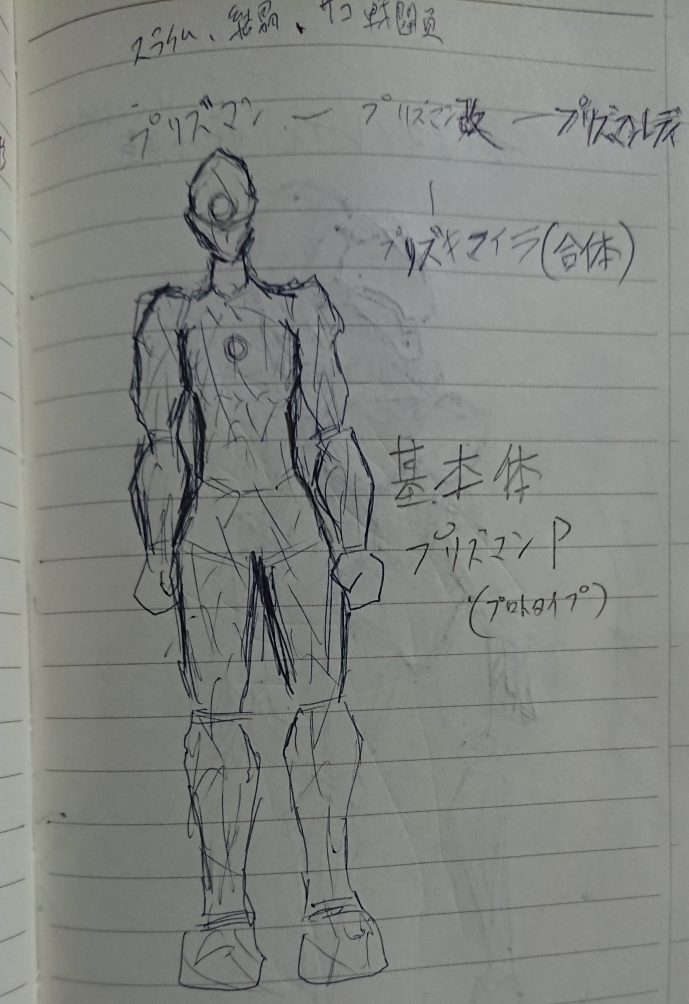 スライム、結晶、ザコ戦闘員
プリズマン ― プリズマン改 ― プリズマレディ
プリズキマイラ(合体)
基本体
プリズマンP
(プロトタイプ)